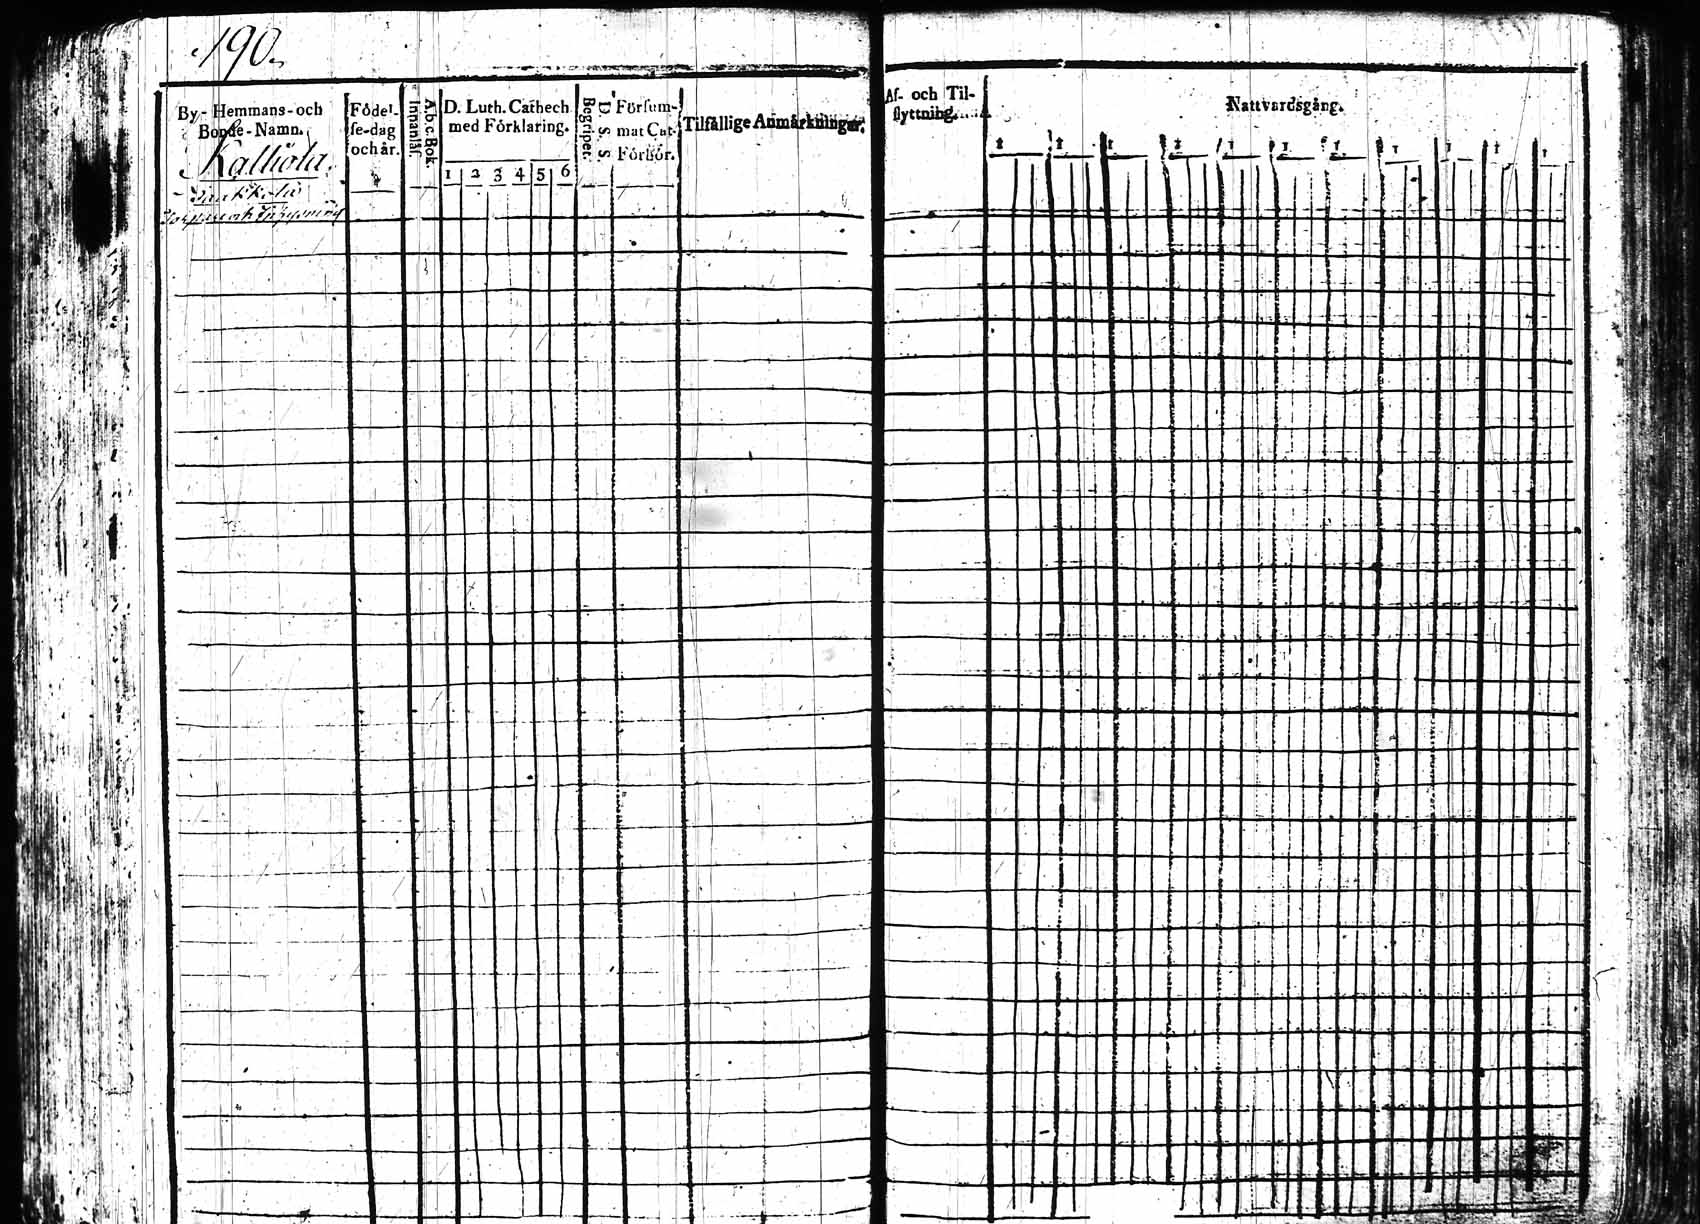 190.
By-Hemmans-och
Bonde-Namn.
Födel-
se-dag
och år.
A.b.c. Bok.
Innanläs.
D. Luth. Cathech.
med Förklaring.
1 2 3 4 5 6
D. S. S.
Begriper.
Försum-
mat Cat-
Förhör.
Tilfällige Anmärkningar.
Af- och Til-
flyttning.
Nattvardsgång.
1 1 1 1 1 1 1 1 1 1 1
Kalliola.